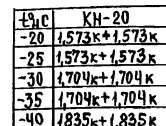 t°н,с КН-20
-20 1,573к+1,573к
-25 1,573к+1,573к
-30 1,704к+1,704к
-35 1,704к+1,704к
-40 1835к+1,835к